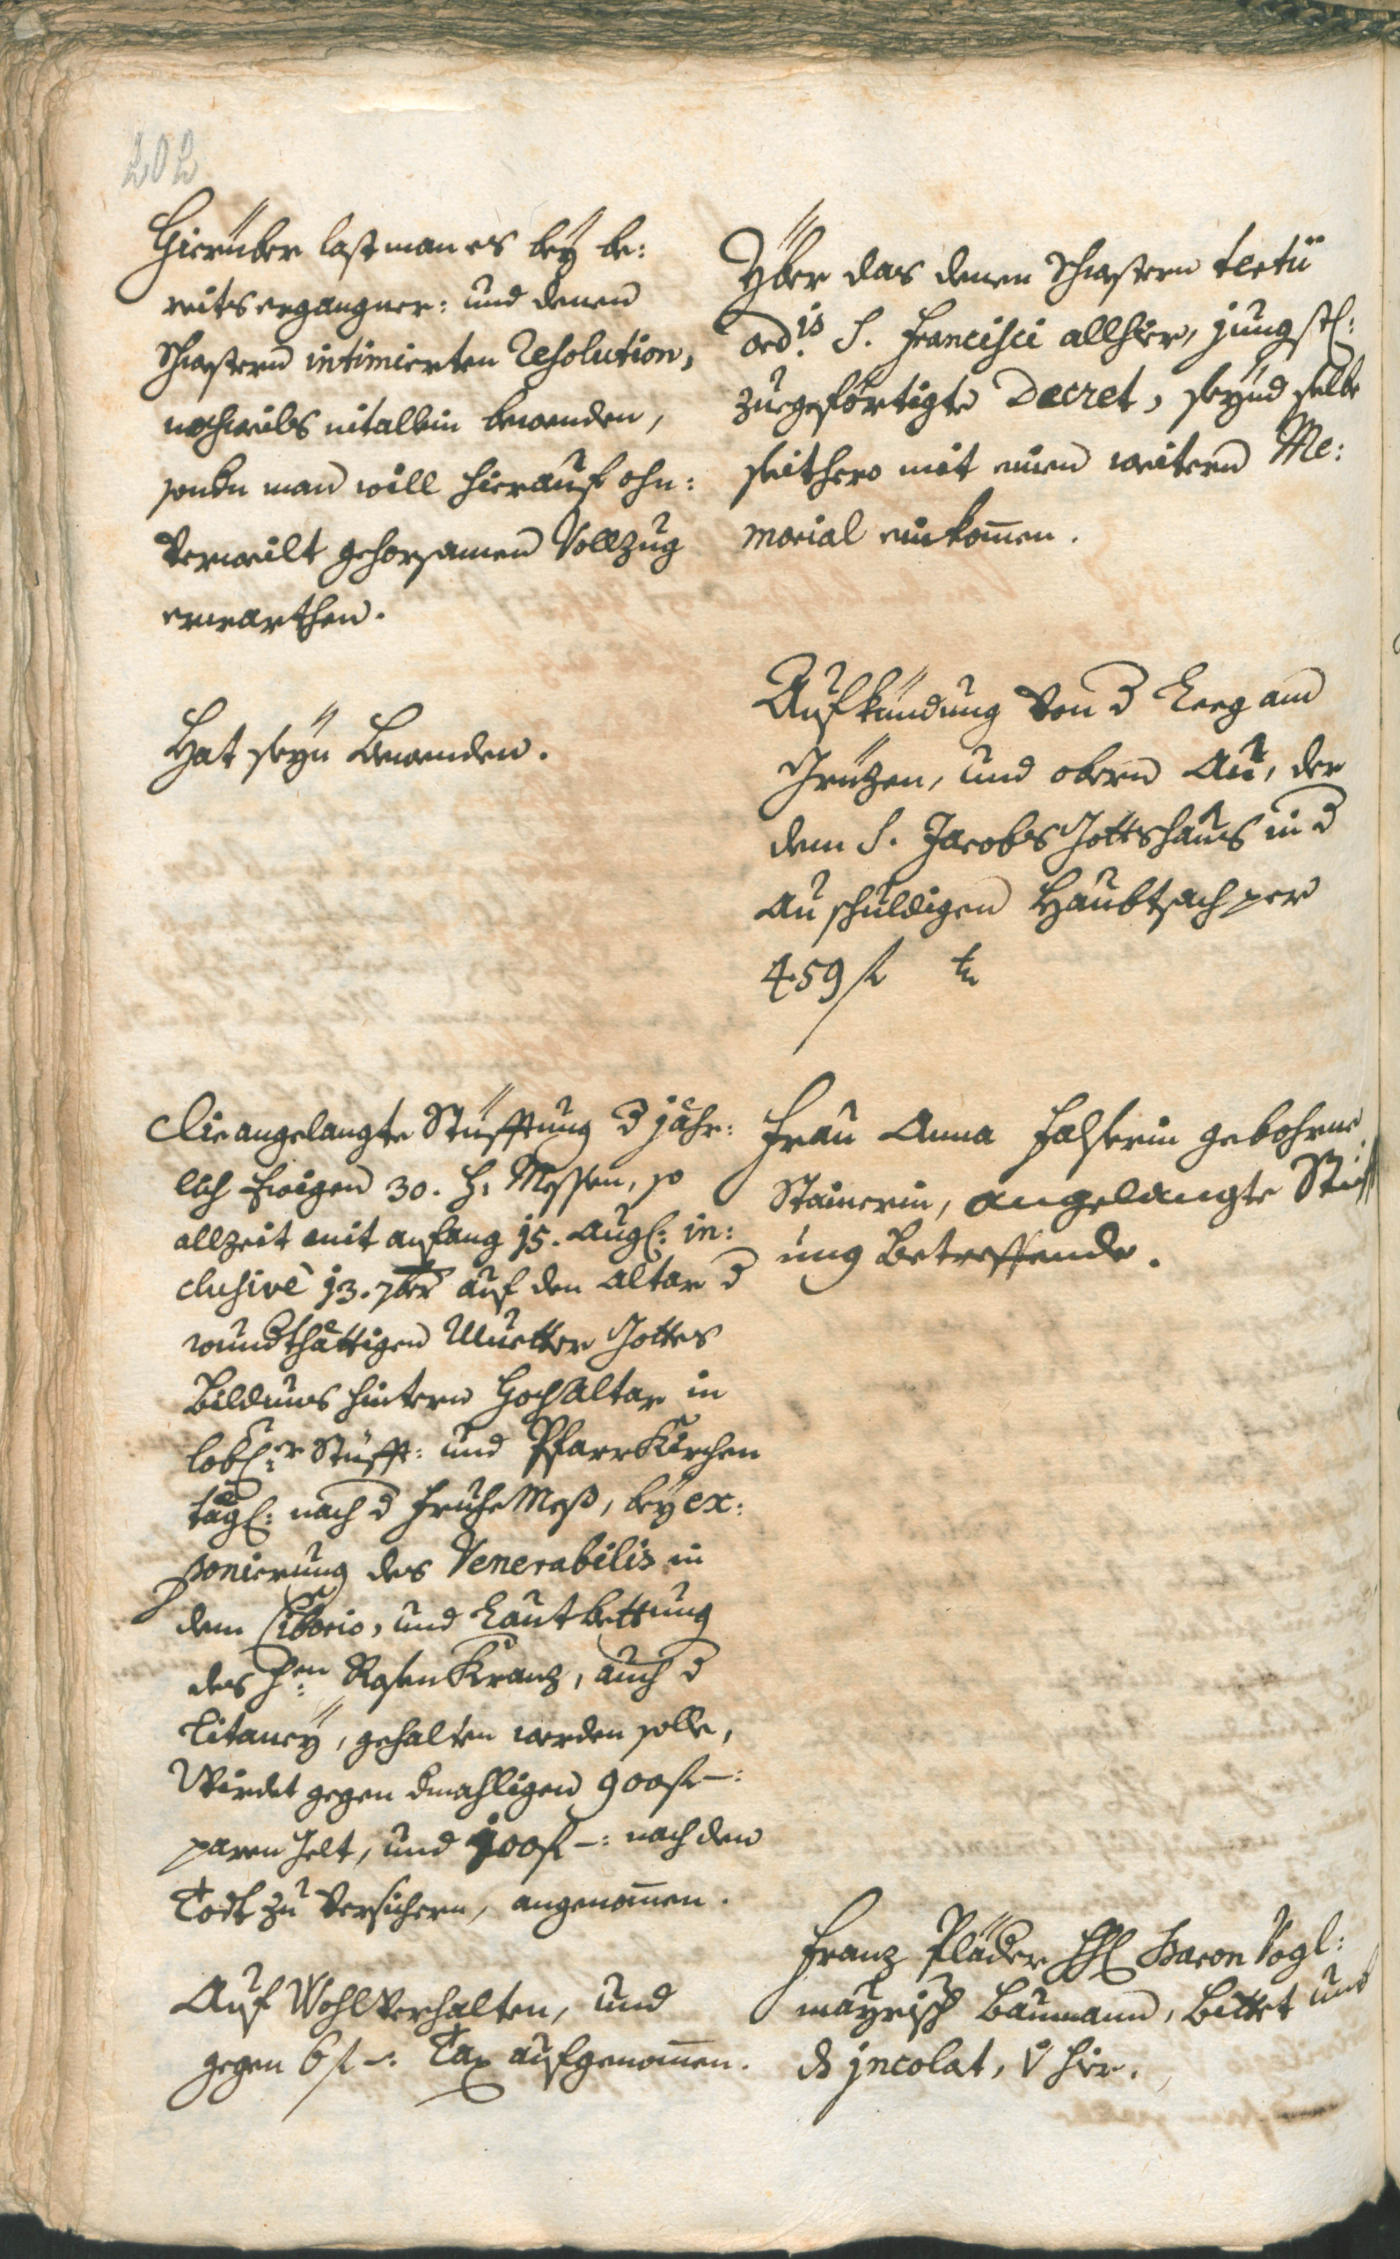 202
Hierüber last man es beÿ be:
reits ergangner: und denen
Schwestern intimierten Resolution,
nochmals nit allein bewenden,
sondern man will hierauf ohn:
verweilt gehorsamen Vollzug
erwarthen.
Hat seÿn Bewenden.
Die angelangte Stüfftung d jähr:
lich Ewigen 30. H: Messen, so
allzeit mit anfang 15. Aug: in:
clusivè 13. 7ber auf den Altar d
wundthättigen Muetter Gottes
Bildnus hintern Hoch Altar in
lobl:r Stüfft: und Pfarr Kirchen
tägl: nach d Fruhe Mess, beÿ ex:
ponierung des Venerabilis in
dem Ciborio, und Laut Bettung
des H:en Rosen Kranz, auch d
Litaneÿ, gehalten werden solle,
Wirdet gegen dmahligen 900 fl –:
paren Gelt, und 100 fl –: nach den
Todt zu Versichern, angenomen.
Auf Wohlverhalten, und
gegen 6 fl –: Tax aufgenomen.
Yber das denen Schwestern tertii
ord:is S. Francisci allhier, jungstl:
zuegeförtigte Decret, seÿnd selbe
seithero mit einen weitern Me:
morial einkomen.
Aufkündung von d Leeg am
Grüzen, und obern Au, der
dem S. Jacobs Gottshaus in d
Au schuldigen Haubtsach per
459 fl
Frau Anna Falserin gebohrne
Stainerin, angelangte Stifft
ung Betreffende.
Franz Pläder Baron Vogl:
maÿrisch Baumann, Bittet umb
ds jncolat, v hir.